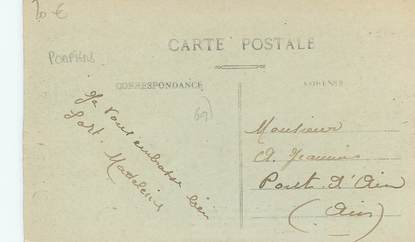 20 €
POMPIERS
CARTE POSTALE
CORRESPONDANCE
ADRESSE
69
Je vous embrasse bien
fort. Madeleine
Monsieur
A. Jeannin
Pont d'Ain
(Ain)